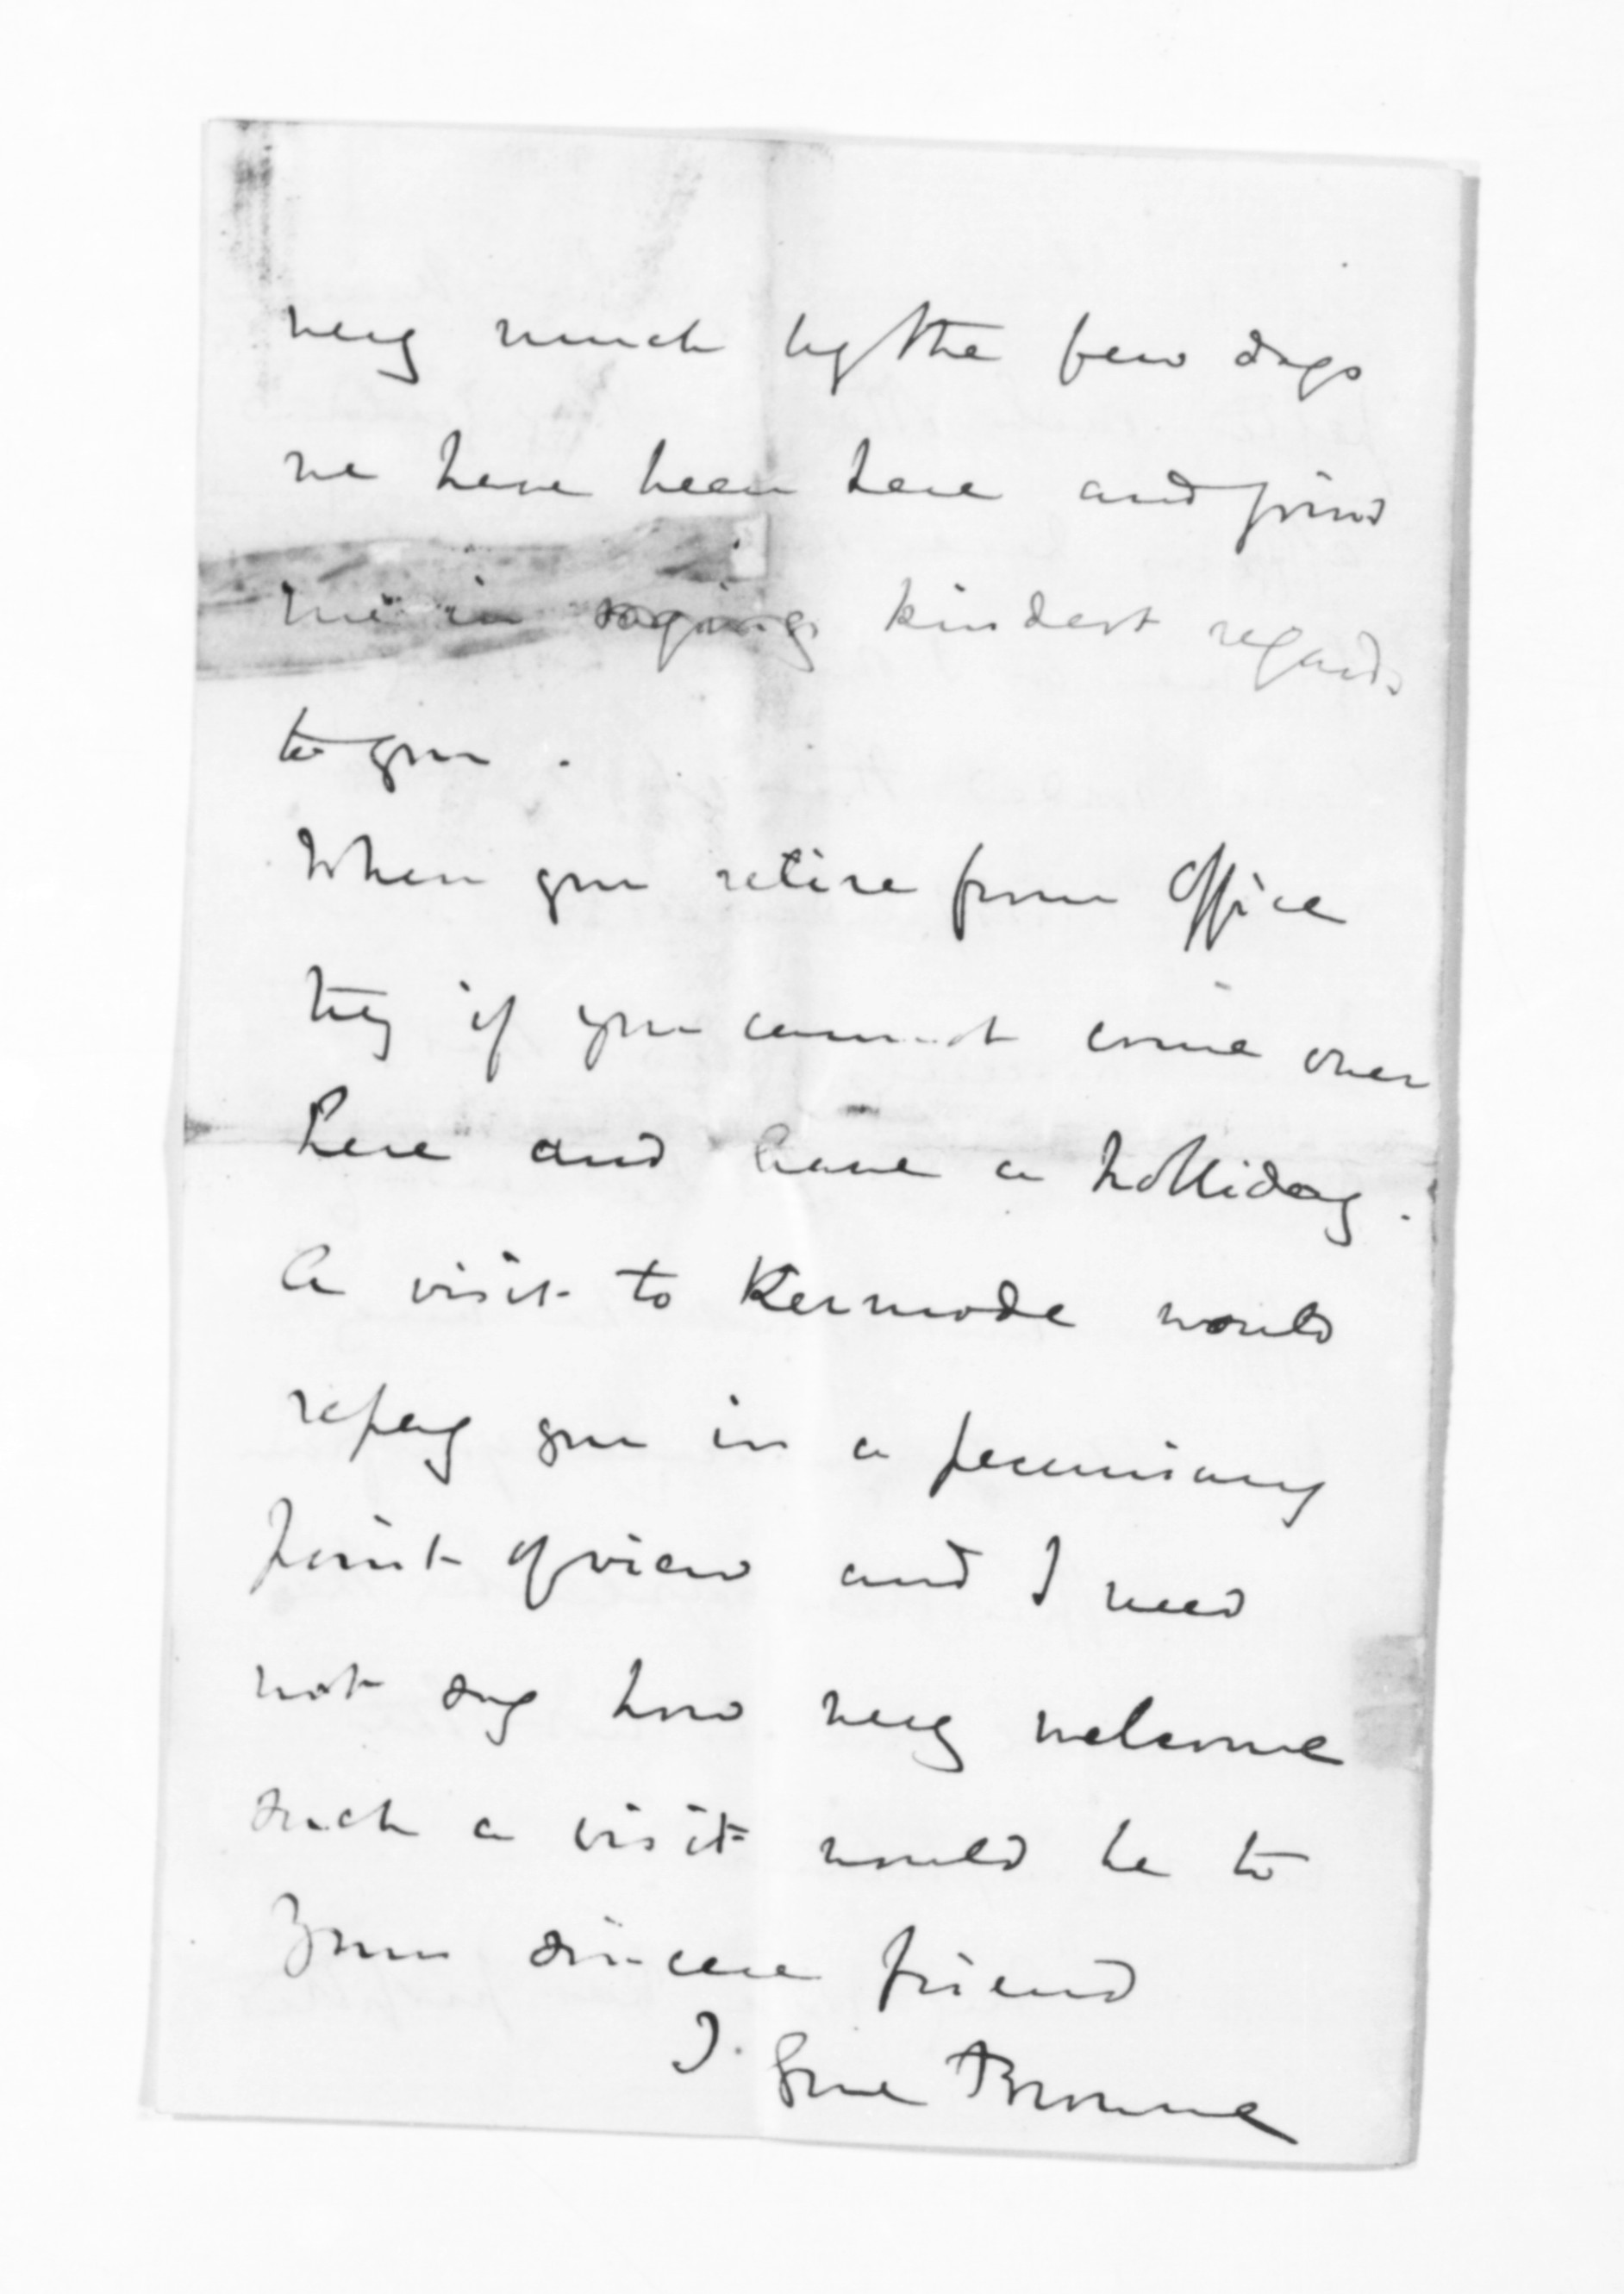 very much by the few days
we have been here and joins
me in saying kindest regards
to you .
When you retire from Office
try if you cannot come over
here and have a holliday .
A visit to Kermode would
repay you in a pecuniary
point of view and I need
not say how very welcome
such a visit would be to
Your sincere friend
J. Gore Browne